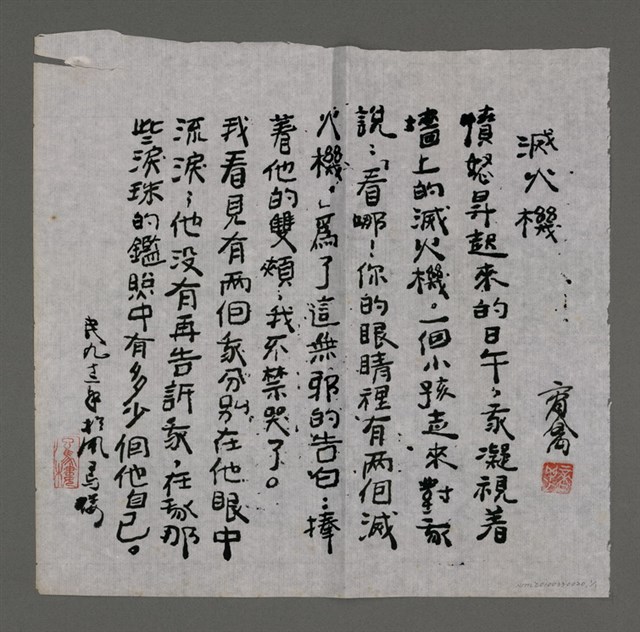 滅火機
商禽
憤怒昇起來的日午，我凝視着
墻上的滅火機。一個小孩走來對我
說：「看哪！你的眼睛裡有兩個滅
火機。」爲了這無邪的告白；捧
着他的雙頰，我不禁哭了。
我看見有兩個我分別在他眼中
流淚；他没有再告訴我，在我那
些淚珠的鑑照中有多少個他自己。
民九十二年於風馬樓